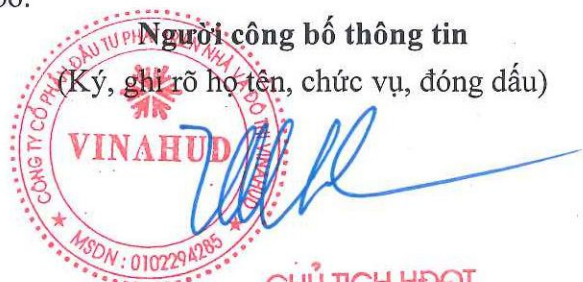 Người công bố thông tin
(Ký, ghi rõ họ tên, chức vụ, đóng dấu)
CÔNG TY CỔ PHẦN ĐẦU TƯ PHÁT TRIỂN NHÀ VÀ ĐÔ THỊ VINAHUD
VINAHUD
MSDN : 0102294285
CHỦ TỊCH HĐQT